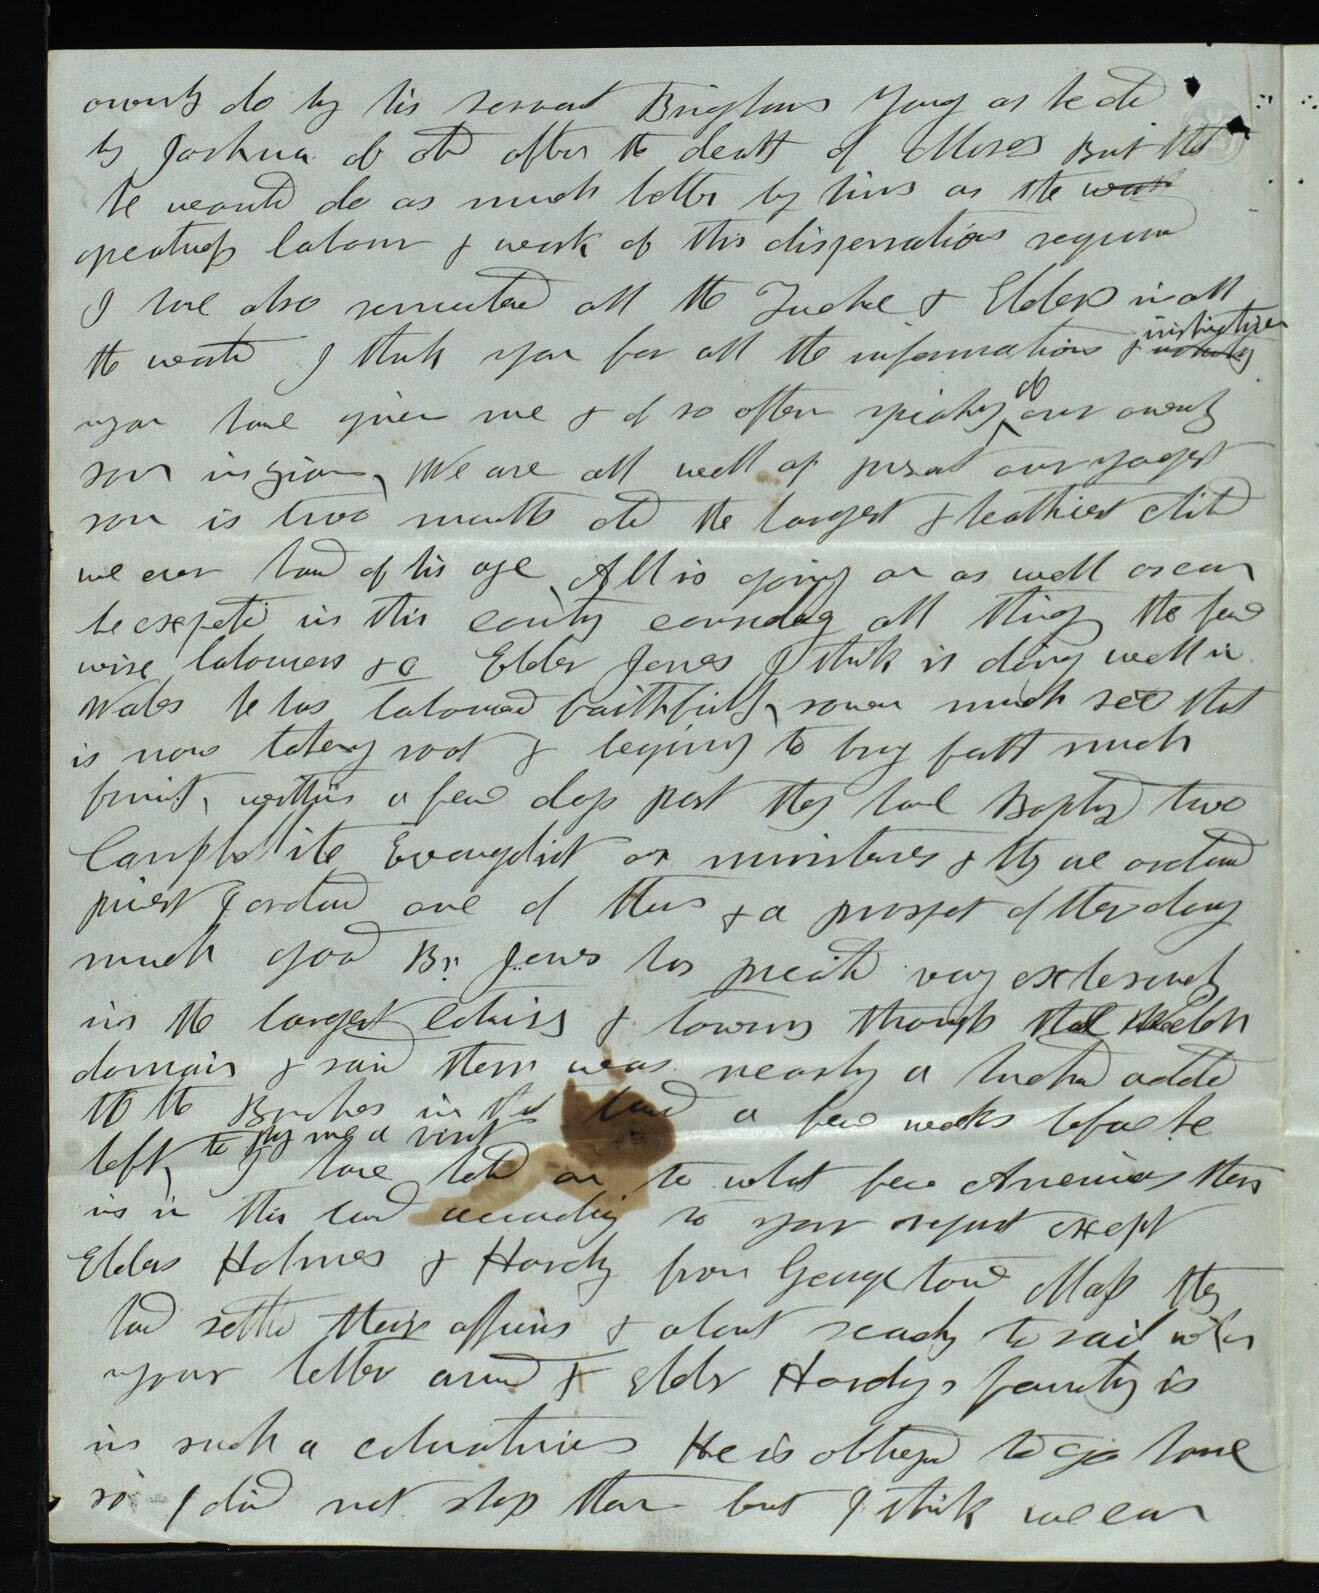 only do by his servant Brigham Young as he did
by Joshua of old after the death of Moses But that
he would do as much better by him as the work
greatness labour & work of this dispensation required
I have also remembered all the Twelve & Elders in all
the world I thank you for all the information & instruction
you have given me & of so often speaking of our only
son in Zion, We are all well at present our yogest
son is two months old the largest & healthiest child
we ever had of his age, All is going on as well as can
be expected in this country considering all things the few
wise labourers &c Elder Jones I think is doing well in
Wales he has laboured faithfully, sown much seed that
is now taking root & begining to bring forth much
fruit, within a few days past they have Baptized two
Campbellite Evangelist or ministers & they are ordained
priest I ordained one of them & a prospect of their doing
much good Br. Jones has preachd very extensively
in the largest cities & towns through the Welch
domain & said there was nearly a hundred added
to the Branches in that land a few weeks before he
left, to pay me a visit I have held on to what few Americans there
is in this land according to your request except
Elders Holmes & Hardy from George town Mass they
had settled their affairs & about ready to sail when
your letter arived & Elder Hardys family is
in such a situation He is obliged to go home
so I did not stop them but I think we can